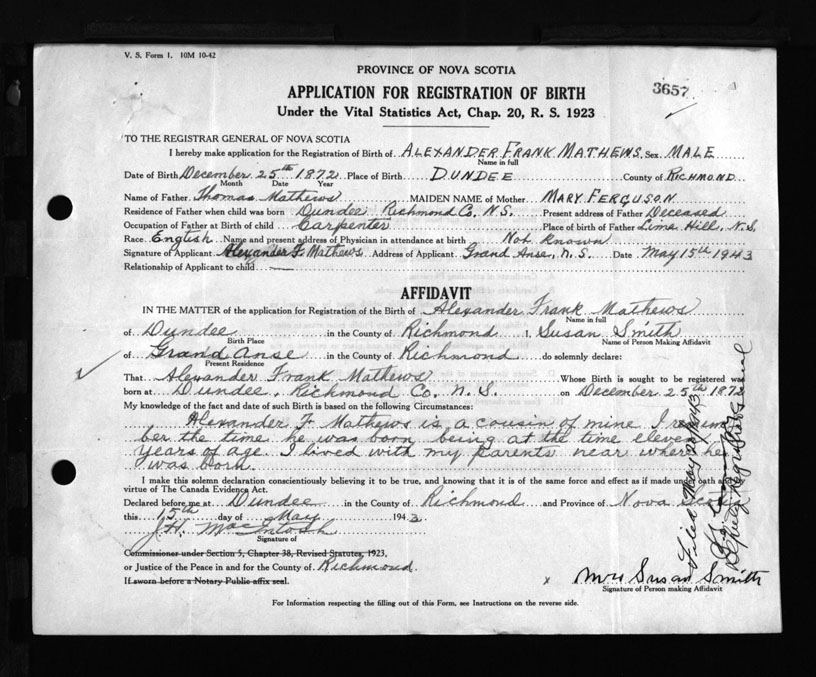 V. S. Form 1. 10M 10-42
PROVINCE OF NOVA SCOTIA
3657
APPLICATION FOR REGISTRATION OF BIRTH
Under the Vital Statistics Act, Chap. 20, R. S. 1923
TO THE REGISTRAR GENERAL OF NOVA SCOTIA
I hereby make application for the Registration of Birth of ALEXANDER FRANK MATHEWS Sex MALE
Name in full
Date of Birth December 25th 1872 Place of Birth DUNDEE County of RICHMOND
Month Date Year
Name of Father Thomas Mathews MAIDEN NAME of Mother MARY FERGUSON
Residence of Father when child was born Dundee Richmond Co. N.S. Present address of Father Deceased
Occupation of Father at Birth of child Carpenter Place of birth of Father Lime Hill, N.S.
Race English Name and present address of Physician in attendance at birth Not Known
Signature of Applicant Alexander F Mathews Address of Applicant Grand Anse, N.S. Date May 15th 1943
Relationship of Applicant to child —
AFFIDAVIT
IN THE MATTER of the application for Registration of the Birth of Alexander Frank Mathews
Name in full
of Dundee in the County of Richmond I, Susan Smith
Birth Place Name of Person Making Affidavit
of Grand Anse in the County of Richmond do solemnly declare:
Present Residence
That Alexander Frank Mathews Whose Birth is sought to be registered was
born at Dundee, Richmond Co. N.S. on December 25th 1872
My knowledge of the fact and date of such Birth is based on the following Circumstances:
Alexander F Mathews is a cousin of mine I remem
ber the time he was born being at the time eleven
years of age I lived with my parents near where he
was born.
I make this solemn declaration conscientiously believing it to be true, and knowing that it is of the same force and effect as if made under oath and
virtue of The Canada Evidence Act.
Declared before me at Dundee in the County of Richmond and Province of Nova Scotia
this 15th day of May 1943.
J.H. MacIntosh
Signature of
Commissioner under Section 5, Chapter 38, Revised Statutes, 1923,
or Justice of the Peace in and for the County of Richmond.
If sworn before a Notary Public affix seal.
x Mrs Susan Smith
Signature of Person making Affidavit
For Information respecting the filling out of this Form, see Instructions on the reverse side.
Filed May 20/1943
Deputy Registrar General